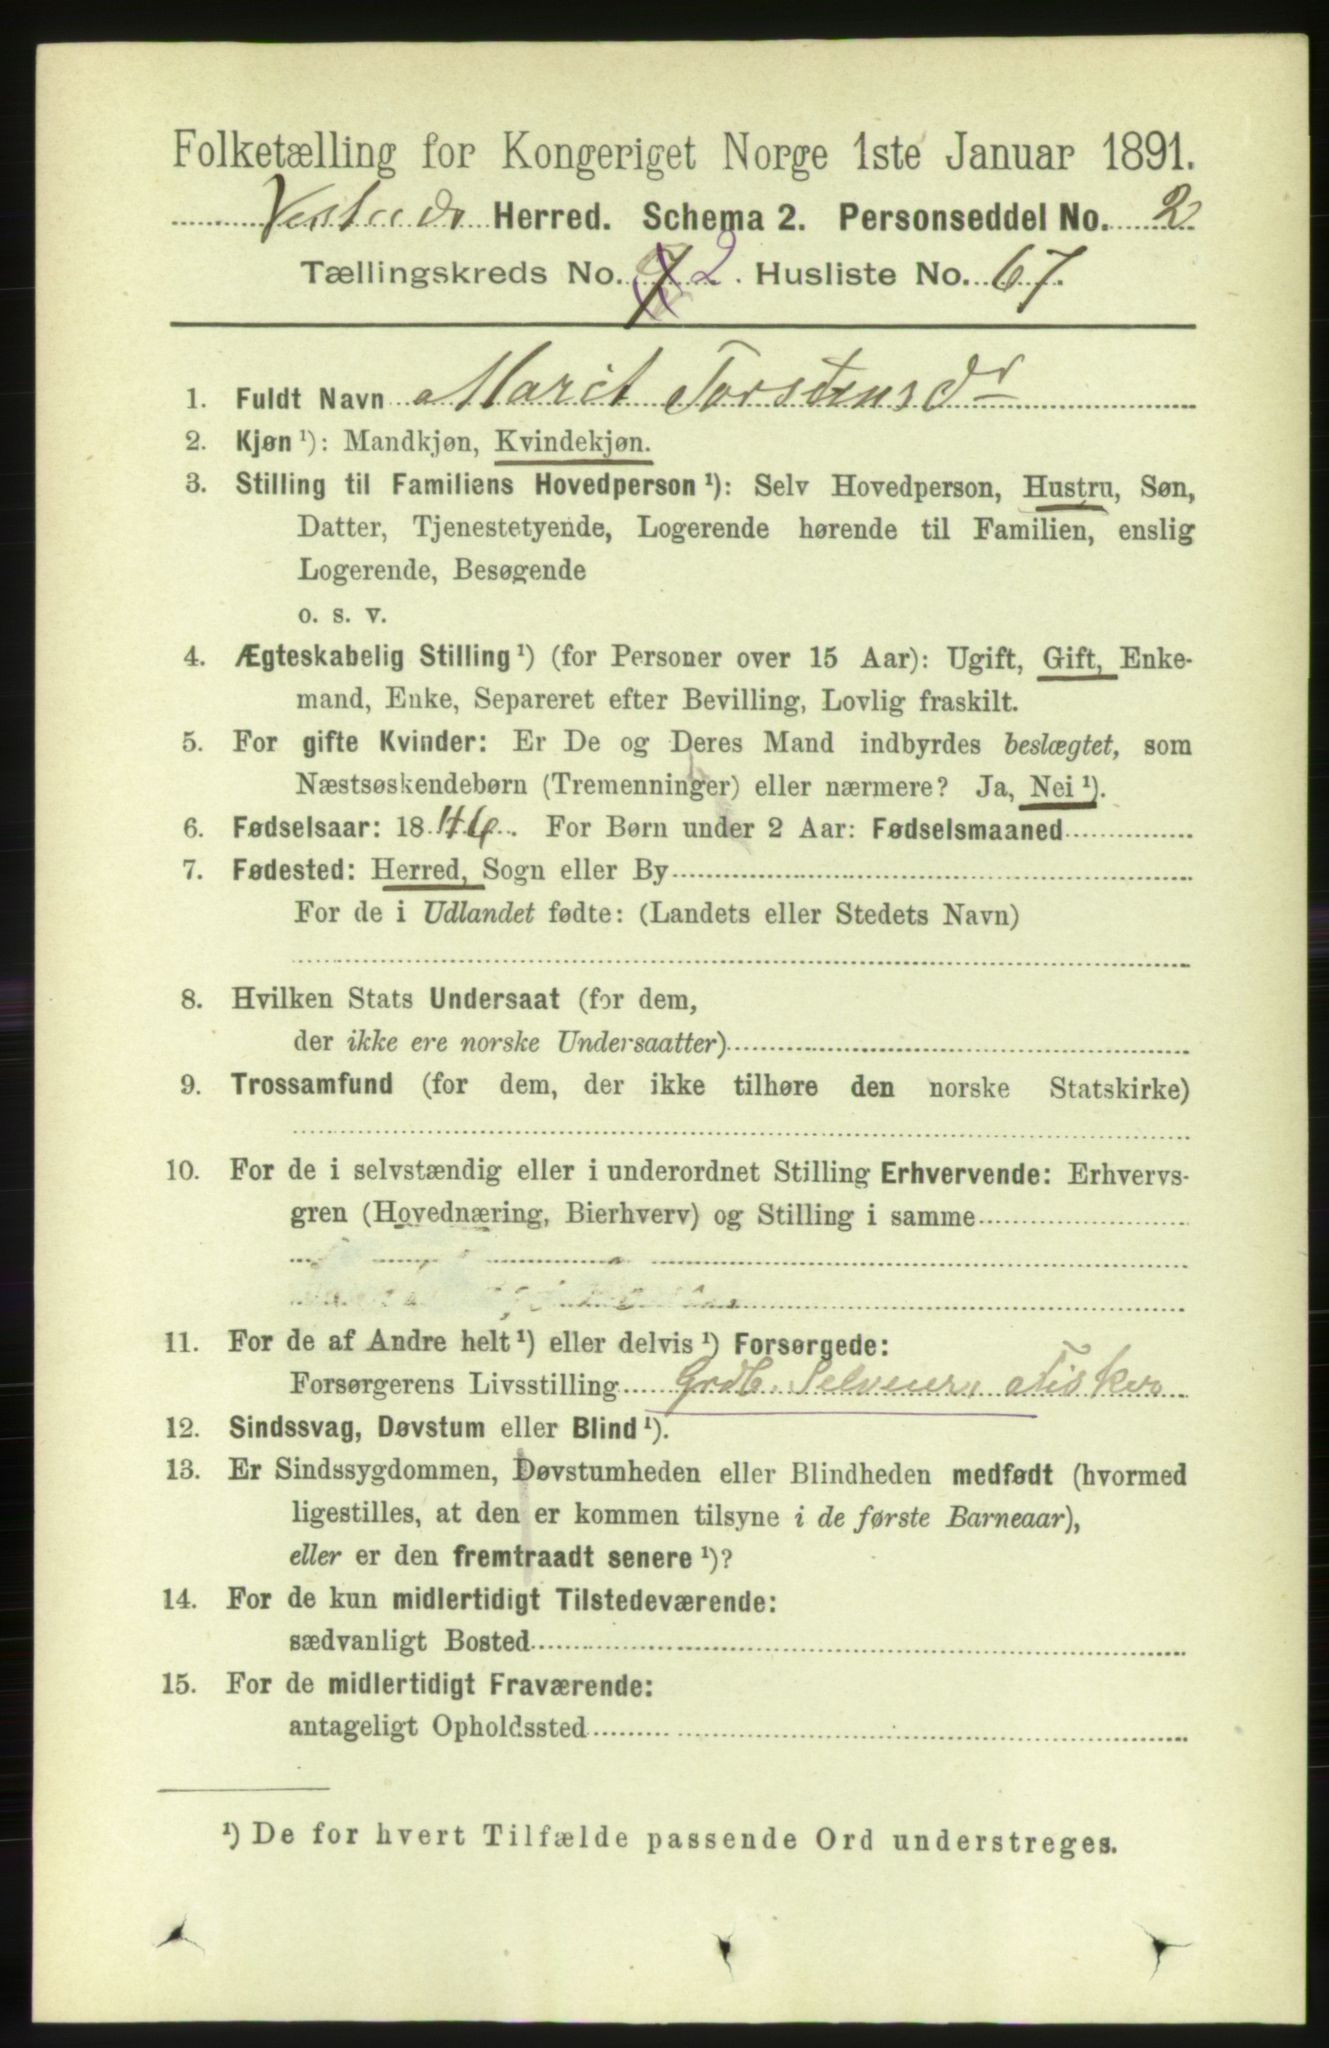 Folketælling for Kongeriget Norge 1ste Januar 1891.
Herred. Schema 2. Personseddel No. 2
Tællingskreds No. 2. Husliste No. 67.
1. Fuldt Navn Marit Torstensdr
2. Kjøn ¹): Mandkjøn, Kvindekjøn.
3. Stilling til Familiens Hovedperson ¹): Selv Hovedperson, Hustru, Søn,
Datter, Tjenestetyende, Logerende hørende til Familien, enslig
Logerende, Besøgende
o. s. v.
4. Ægteskabelig Stilling ¹) (for Personer over 15 Aar): Ugift, Gift, Enke-
mand, Enke, Separeret efter Bevilling, Lovlig fraskilt.
5. For gifte Kvinder: Er De og Deres Mand indbyrdes beslægtet, som
Næstsøskendebørn (Tremenninger) eller nærmere? Ja, Nei ¹).
6. Fødselsaar: 1846. For Børn under 2 Aar: Fødselsmaaned
7. Fødested: Herred, Sogn eller By
For de i Udlandet fødte: (Landets eller Stedets Navn)
8. Hvilken Stats Undersaat (for dem,
der ikke ere norske Undersaatter)
9. Trossamfund (for dem, der ikke tilhøre den norske Statskirke)
10. For de i selvstændig eller i underordnet Stilling Erhvervende: Erhvervs-
gren (Hovednæring, Bierhverv) og Stilling i samme
11. For de af Andre helt ¹) eller delvis ¹) Forsørgede:
Forsørgerens Livsstilling Grdb. Selveier
12. Sindssvag, Døvstum eller Blind ¹).
13. Er Sindssygdommen, Døvstumheden eller Blindheden medfødt (hvormed
ligestilles, at den er kommen tilsyne i de første Barneaar),
eller er den fremtraadt senere ¹)?
14. For de kun midlertidigt Tilstedeværende:
sædvanligt Bosted
15. For de midlertidigt Fraværende:
antageligt Opholdssted
¹) De for hvert Tilfælde passende Ord understreges.